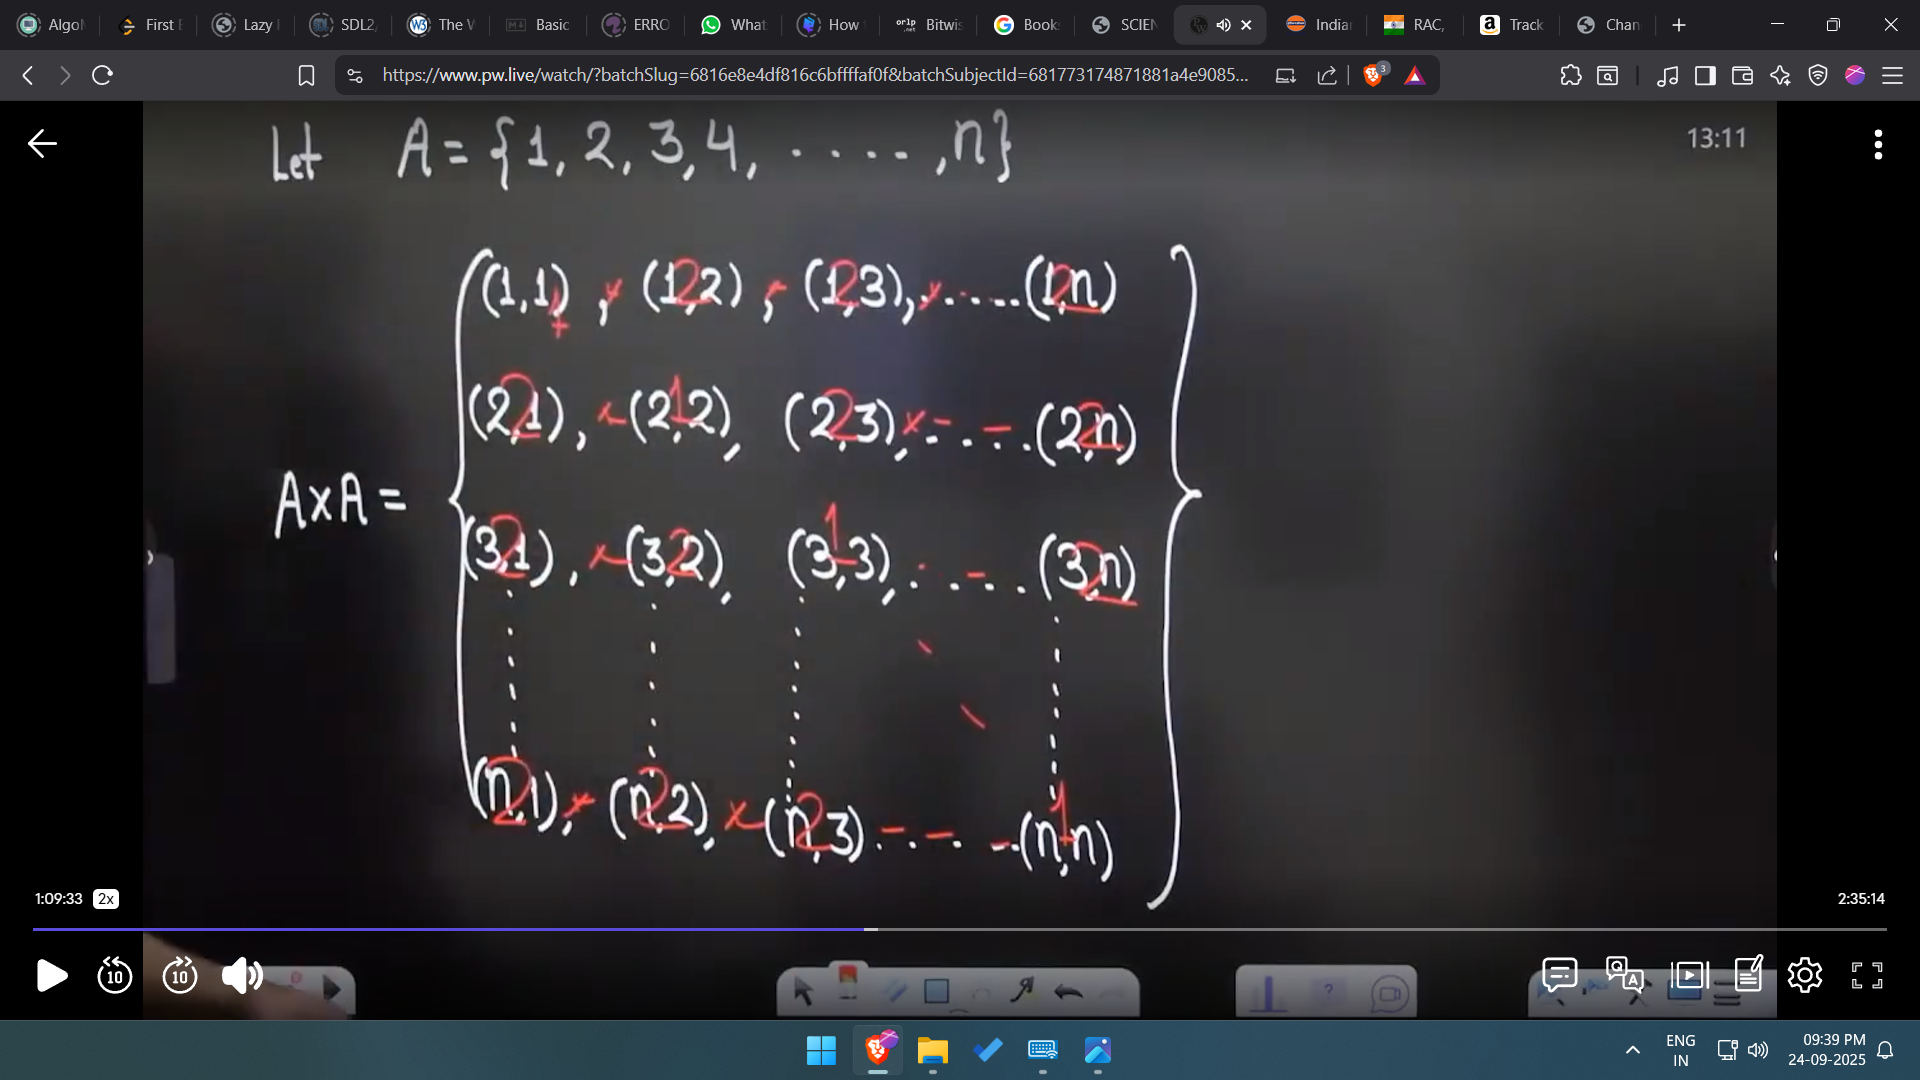 Algo First E Lazy SDL2, The W Basic ERRO What How Bitwis Book SCIEN India RAC, Track Chan
https://www.pw.live/watch/?batchSlug=6816e8e4df816c6bffffaf0f&batchSubjectId=681773174871881a4e9085...
3
Let A = {1, 2, 3, 4, ....., n}
13:11
(1,1), (1,2), (1,3), ..... (1,n)
(2,1), (2,2), (2,3), .... (2,n)
A×A =
(3,1), (3,2), (3,3), .... (3,n)
(n,1), (n,2), (n,3) .... (n,n)
1:09:33 2x 2:35:14
10 10
ENG
IN
09:39 PM
24-09-2025